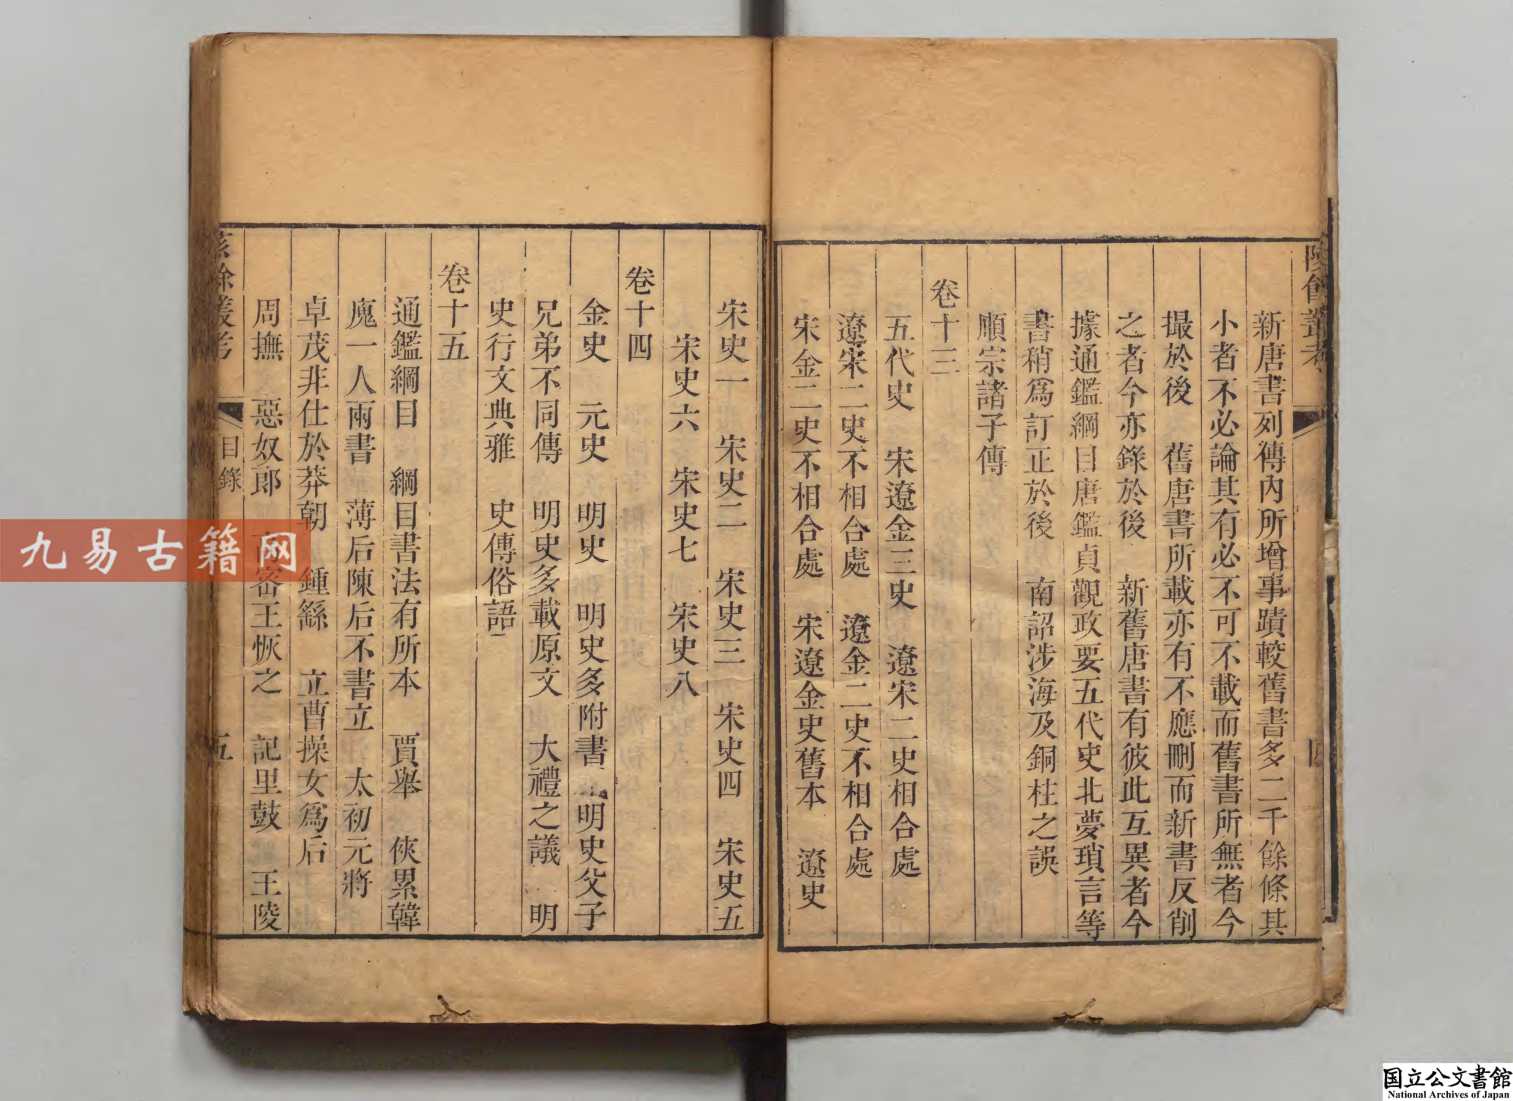 新唐書列傳內所增事蹟較舊書多二千餘條其
小者不必論其有必不可不載而舊書所無者今
撮於後 舊唐書所載亦有不應刪而新書反削
之者今亦錄於後 新舊唐書有彼此互異者今
據通鑑綱目唐鑑貞觀政要五代史北夢瑣言等
書稍爲訂正於後 南詔涉海及銅柱之誤
順宗諸子傳
卷十三
五代史 宋遼金三史 遼宋二史相合處
遼宋二史不相合處 遼金二史不相合處
宋金二史不相合處 宋遼金史舊本 遼史
宋史一 宋史二 宋史三 宋史四 宋史五
宋史六 宋史七 宋史八
卷十四
金史 元史 明史 明史多附書 明史父子
兄弟不同傳 明史多載原文 大禮之議 明
史行文典雅 史傳俗語
卷十五
通鑑綱目 綱目書法有所本 賈舉 俠累韓
廆一人兩書 薄后陳后不書立 太初元將
卓茂非仕於莽朝 鍾繇 立曹操女爲后
周撫 惡奴郎 密王恢之 記里鼓 王陵
陔餘叢考 目錄 五
九易古籍网
国立公文書館
National Archives of Japan